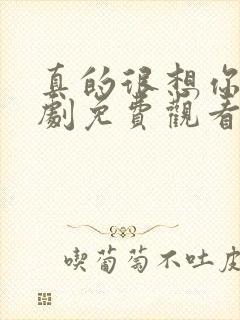 真的很想你
劇免費觀看
喫葡萄不吐皮